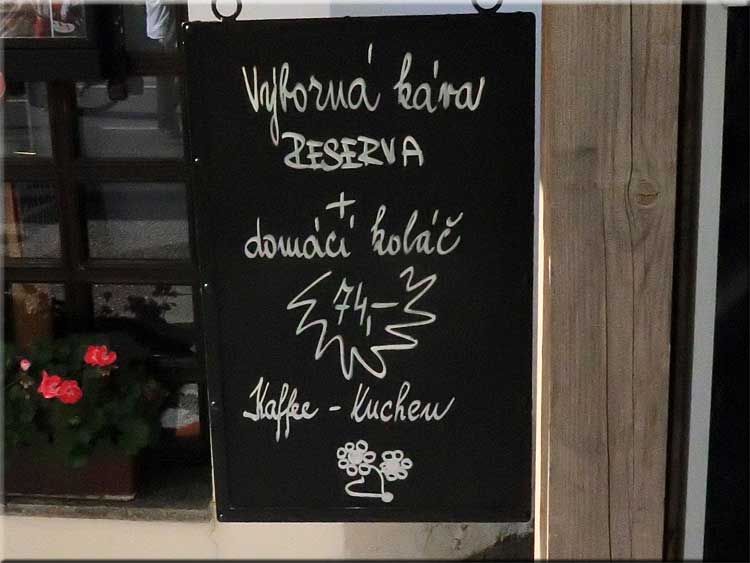 Výborná káva
RESERVA
+
domácí koláč
74,-
Kaffee - Kuchen